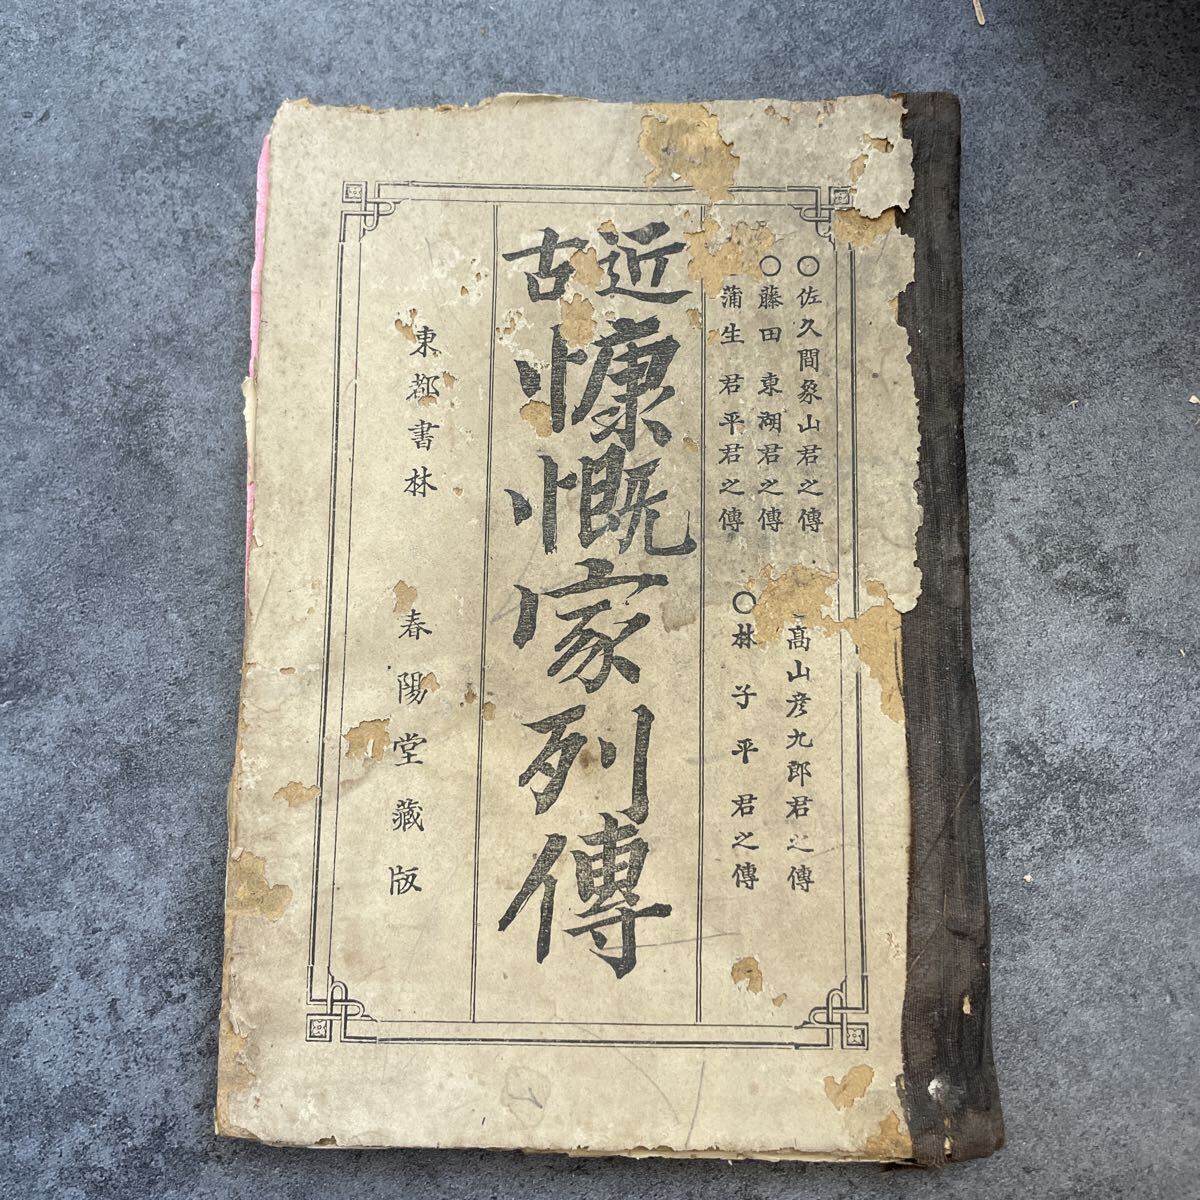 ○佐久間象山君之傳
高山彦九郎君之傳
○藤田東湖君之傳
○林子平君之傳
蒲生君平君之傳
近古
慷慨家列傳
東都書林 春陽堂藏版